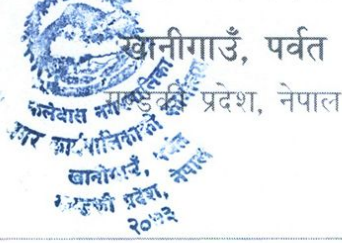 खानीगाउँ, पर्वत
गण्डकी प्रदेश, नेपाल
फलेवास नगरपालिका
नगर कार्यपालिकाको कार्यालय
खानीगाउँ, पर्वत
गण्डकी प्रदेश, नेपाल
२०७३